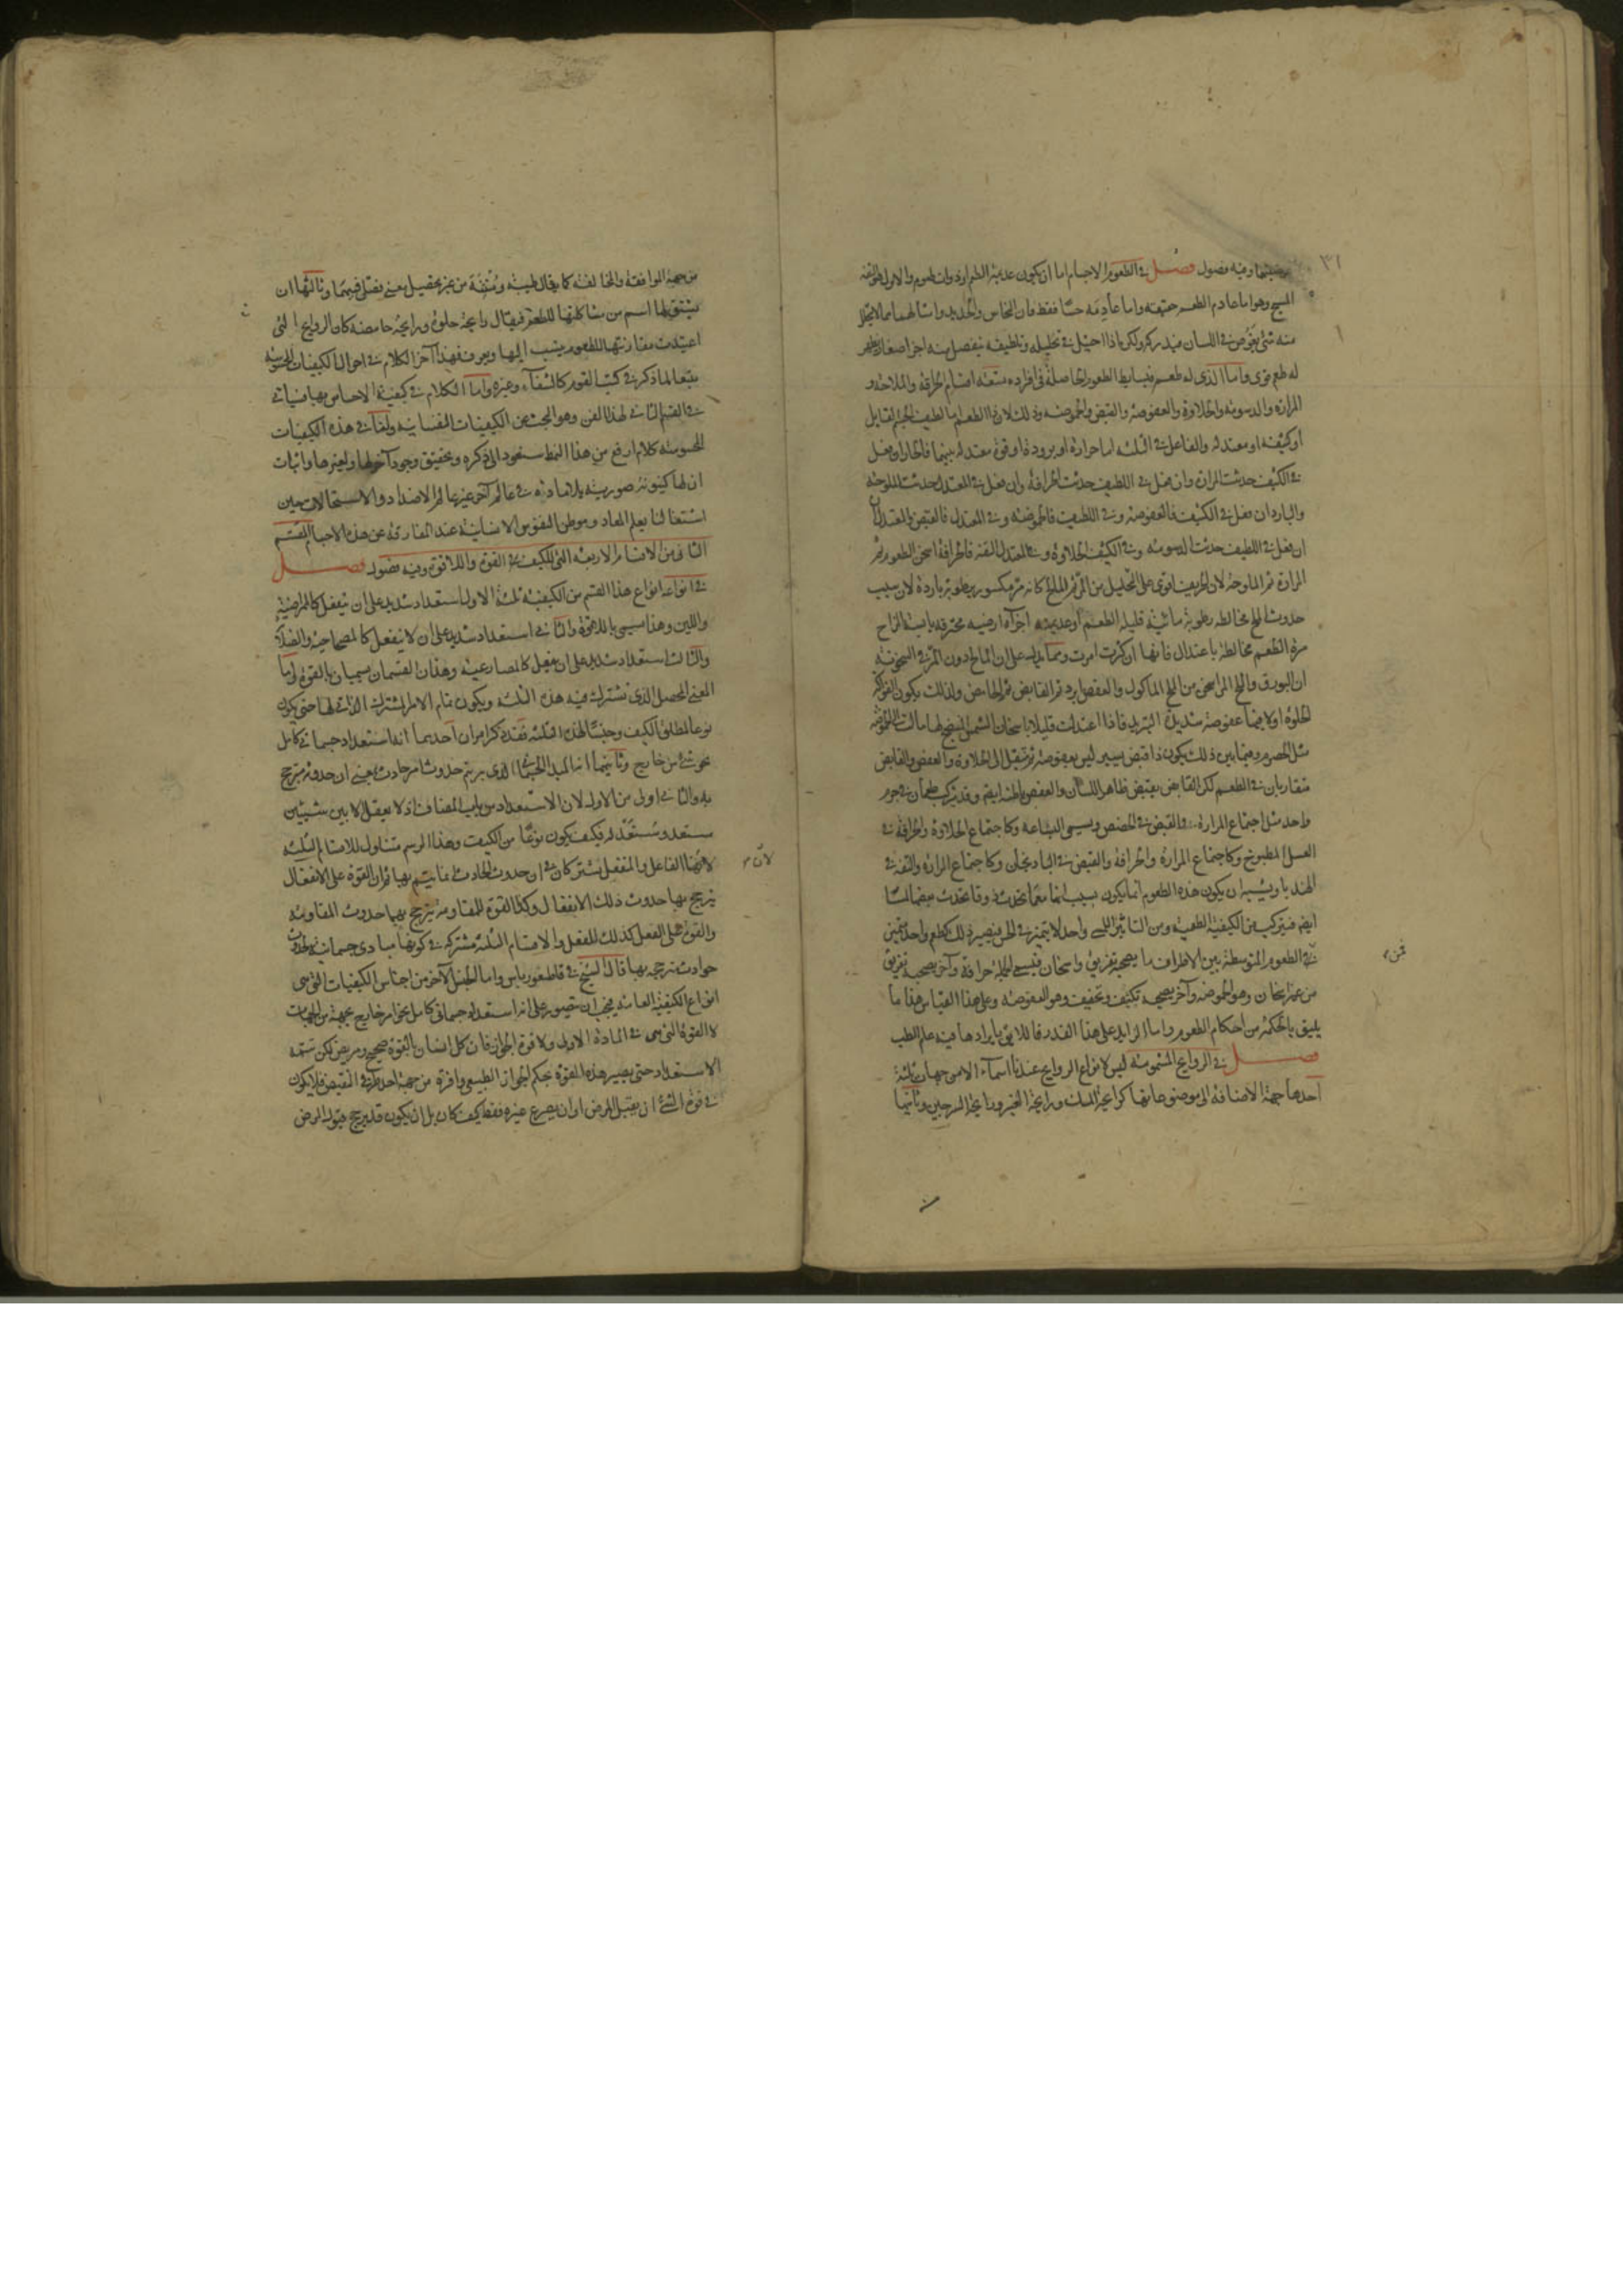 ٣١
وفيه فصول فصل في الطعوم الاجسام اما ان يكون عديمة الطعم او ذوات طعوم والاول هو التفه
المسيخ وهو اما عادم الطعم حقيقة واما عادمه حسا فقط فان النحاس والحديد وامثالهما مما لا يتحلل
منه شئ يغوص في اللسان فيدركه ولكن اذا احتيل في تحليله وتلطيفه ينفصل منه اجزا صغار يظهر
له طعم قوى واما الذى له طعم فبسايط الطعوم الحاصلة في افراده تسعة اقسام الحرافة والملاحة و
المرارة والدسومة والحلاوة والعفوصة والقبض والحموضة وذلك لان ذا الطعم اما لطيف الجسم القابل
او كثيفه او معتدله والفاعل في الثلثة اما حرارة او برودة او قوة معتدلة بينهما فالحار ان فعل
في الكثيف حدثت المرارة وان فعل في اللطيف حدثت الحرافة وان فعل في المعتدل حدثت الملوحة
والبارد ان فعل في الكثيف فالعفوصة وفي اللطيف فالحموضة وفي المعتدل فالقبض والمعتدل
ان فعل في اللطيف حدثت الدسومة وفي الكثيف الحلاوة وفي المعتدل التفه فالحرافة اسخن الطعوم ثم
المرارة ثم الملوحة لان الحريف اقوى على التحليل من المر ثم المالح كانه مر مكسور برطوبة باردة لان سبب
حدوث الملح مخالطة رطوبة مائية قليلة الطعم او عديمته اجزآء ارضية محترقة يابسة المزاج
مرة الطعم مخالطة باعتدال فانها ان كثرت امرت ومما يدل على ان المالح دون المر في السخونة
ان البورق والملح المر اسخن من الملح الماكول والعفص ابرد ثم القابض ثم الحامض ولذلك يكون الفواكه
الحلوة اولا فيها عفوصة شديدة التبريد فاذا اعتدلت قليلا باسخان الشمس المنضج لها مالت الى الحموضة
مثل الحصرم وفيما بين ذلك يكون ذا قبض يسير ليس بعفوصة ثم تنتقل الى الحلاوة والعفص والقابض
متقاربان في الطعم لكن القابض يقبض ظاهر اللسان والعفص باطنه ايضا وقد يتركب طعمان في جرم
واحد مثل اجتماع المرارة والقبض في الحضض ويسمى البشاعة وكاجتماع الحلاوة والحرافة في
العسل المطبوخ وكاجتماع المرارة والحرافة والقبض في الباذنجان وكاجتماع المرارة والتفه في
الهندبا ويشبه ان يكون هذه الطعوم انما يكون بسبب انها مع ما تحدث ذوقا تحدث بعضها لمسا
ايضا فيتركب من الكيفية الطعمية ومن التاثير اللمسى واحد لا يتميز في الحس فيصير ذلك كطعم واحد متميز
في الطعوم المتوسطة بين الاطراف ما يصحبه تفريق واسخان فيسمى الجملة حرافة وآخر يصحبه تفريق
من غير اسخان وهو الحموضة وآخر يصحبه تكثيف وتجفيف وهو العفوصة وعلى هذا القياس هذا ما
يليق بالحكمة من احكام الطعوم واما الزايد على هذا القدر فاللائق بايراده فيه علم الطب
فصل في الروايح المشمومة ليس لانواع الروايح عندنا اسمآء الا من جهات ثلثة
احدها جهة الاضافة الى موضوعاتها كرايحة المسك ورايحة الخبز ورايحة السرجين وثانيها
من جهة الموافقة والمخالفة كما يقال طيبة ومنتنة من غير تحصيل معنى فصلى فيهما وثالثها ان
يشتق لها اسم من مشاكلتها للطعم فيقال رايحة حلوة ورايحة حامضة كان الروايح التى
اعتيدت مقارنتها للطعوم ينسب اليها ويعرف فهذا آخر الكلام في احوال الكيفيات المحسوسة
تبعا لما ذكر في كتب القوم كالشفآء وغيره واما الكلام في كيفية الاحساس بها فسياتى
في القسم الثانى لهذا الفن وهو البحث عن الكيفيات النفسانية ولنا في هذه الكيفيات
المحسوسة كلام ارفع من هذا النمط سنعود الى ذكره وتحقيق وجود آخر لها ولغيرها واثبات
ان لها كينونة صورية بلا مادة في عالم آخر غير عالم الاضداد والاستحالات حين
اشتغالنا بعلم المعاد وموطن النفوس الانسانية عند المفارقة عن هذه الاجسام القسم
الثانى من الاقسام الاربعة التى للكيف في القوة واللاقوة وفيه فصول فصل
في انواعه انواع هذا القسم من الكيفية ثلثة الاول استعداد شديد على ان ينفعل كالممراضية
واللين وهذا يسمى باللاقوة والثانى استعداد شديد على ان لا ينفعل كالمصحاحية والصلابة
والثالث استعداد شديد على ان يفعل كالمصارعية وهذان القسمان يسميان بالقوة واما
المعنى المحصل الذى تشترك فيه هذه الثلثة ويكون تمام الامر المشترك الذاتى لها حتى يكون
نوعا لمطلق الكيف وجنسا لهذه الثلثة فقد ذكر امران احدهما انه استعداد جسمانى كامل
نحو شئ من خارج وثانيهما انه المبدا الجسمانى الذى به يتم حدوث امر حادث بمعنى ان حدوثه مترجح
به والثانى اولى من الاول لان الاستعداد من باب المضاف اذ لا يعقل الا بين شيئين
مستعد ومستعد له فكيف يكون نوعا من الكيف وهذا الرسم متناول للاقسام الثلثة
لانهما الفاعل والمنفعل يشتركان في ان حدوث الحادث انما يتم بهما فان القوة على الانفعال
يترجح بها حدوث ذلك الانفعال وكذا القوة للمقاومة يترجح بهما حدوث المقاومة
والقوة على الفعل كذلك للفعل والاقسام الثلثة مشتركة في كونها مبادى جسمانية لحدوث
حوادث تترجح بها قال الشيخ في قاطيغورياس واما الجنس الآخر من اجناس الكيفيات التى هى
انواع الكيفية العامة فيجب ان يتصور على انه استعداد جسمانى كامل نحو امر خارج بجهة من الجهات
لا القوة التى هى في المادة الاولى ولا قوة الجواز فان كل انسان بالقوة صحيح ومريض لكن يتمه
الاستعداد حتى يصير هذه القوة بحكم الجواز الطبيعى وافرة من جهة احد طرفى النقيض فلا يكون
في قوة الشئ ان يقبل المرض او ان يصرع غيره فقط كيف كان بل ان يكون قد يترجح قبول المرض
لان